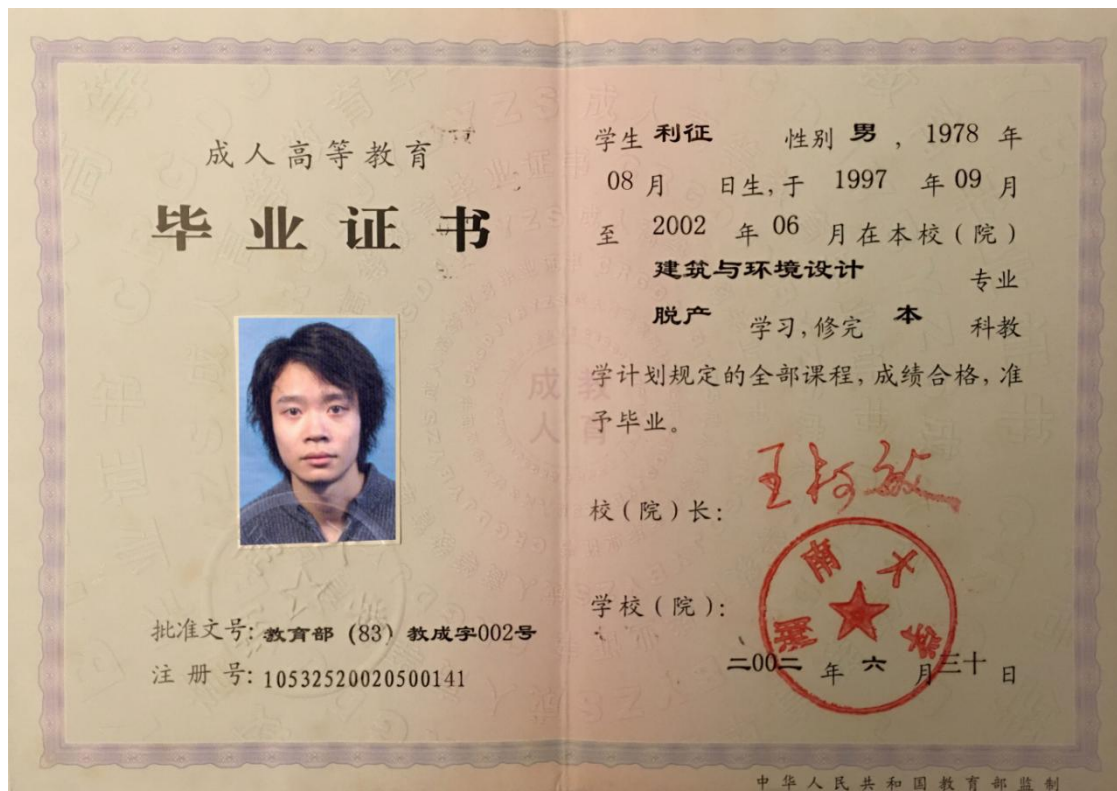 成人高等教育
毕业证书
批准文号: 教育部 (83) 教成字002号
注册号: 10532520020500141
学生 利征 性别 男 , 1978 年
08 月 日生, 于 1997 年 09 月
至 2002 年 06 月在本校(院)
建筑与环境设计 专业
脱产 学习, 修完 本 科教
学计划规定的全部课程, 成绩合格, 准
予毕业。
校(院)长:
学校(院):
湖南大学
二00二 年 六 月 三十 日
中华人民共和国教育部监制
成教
人育